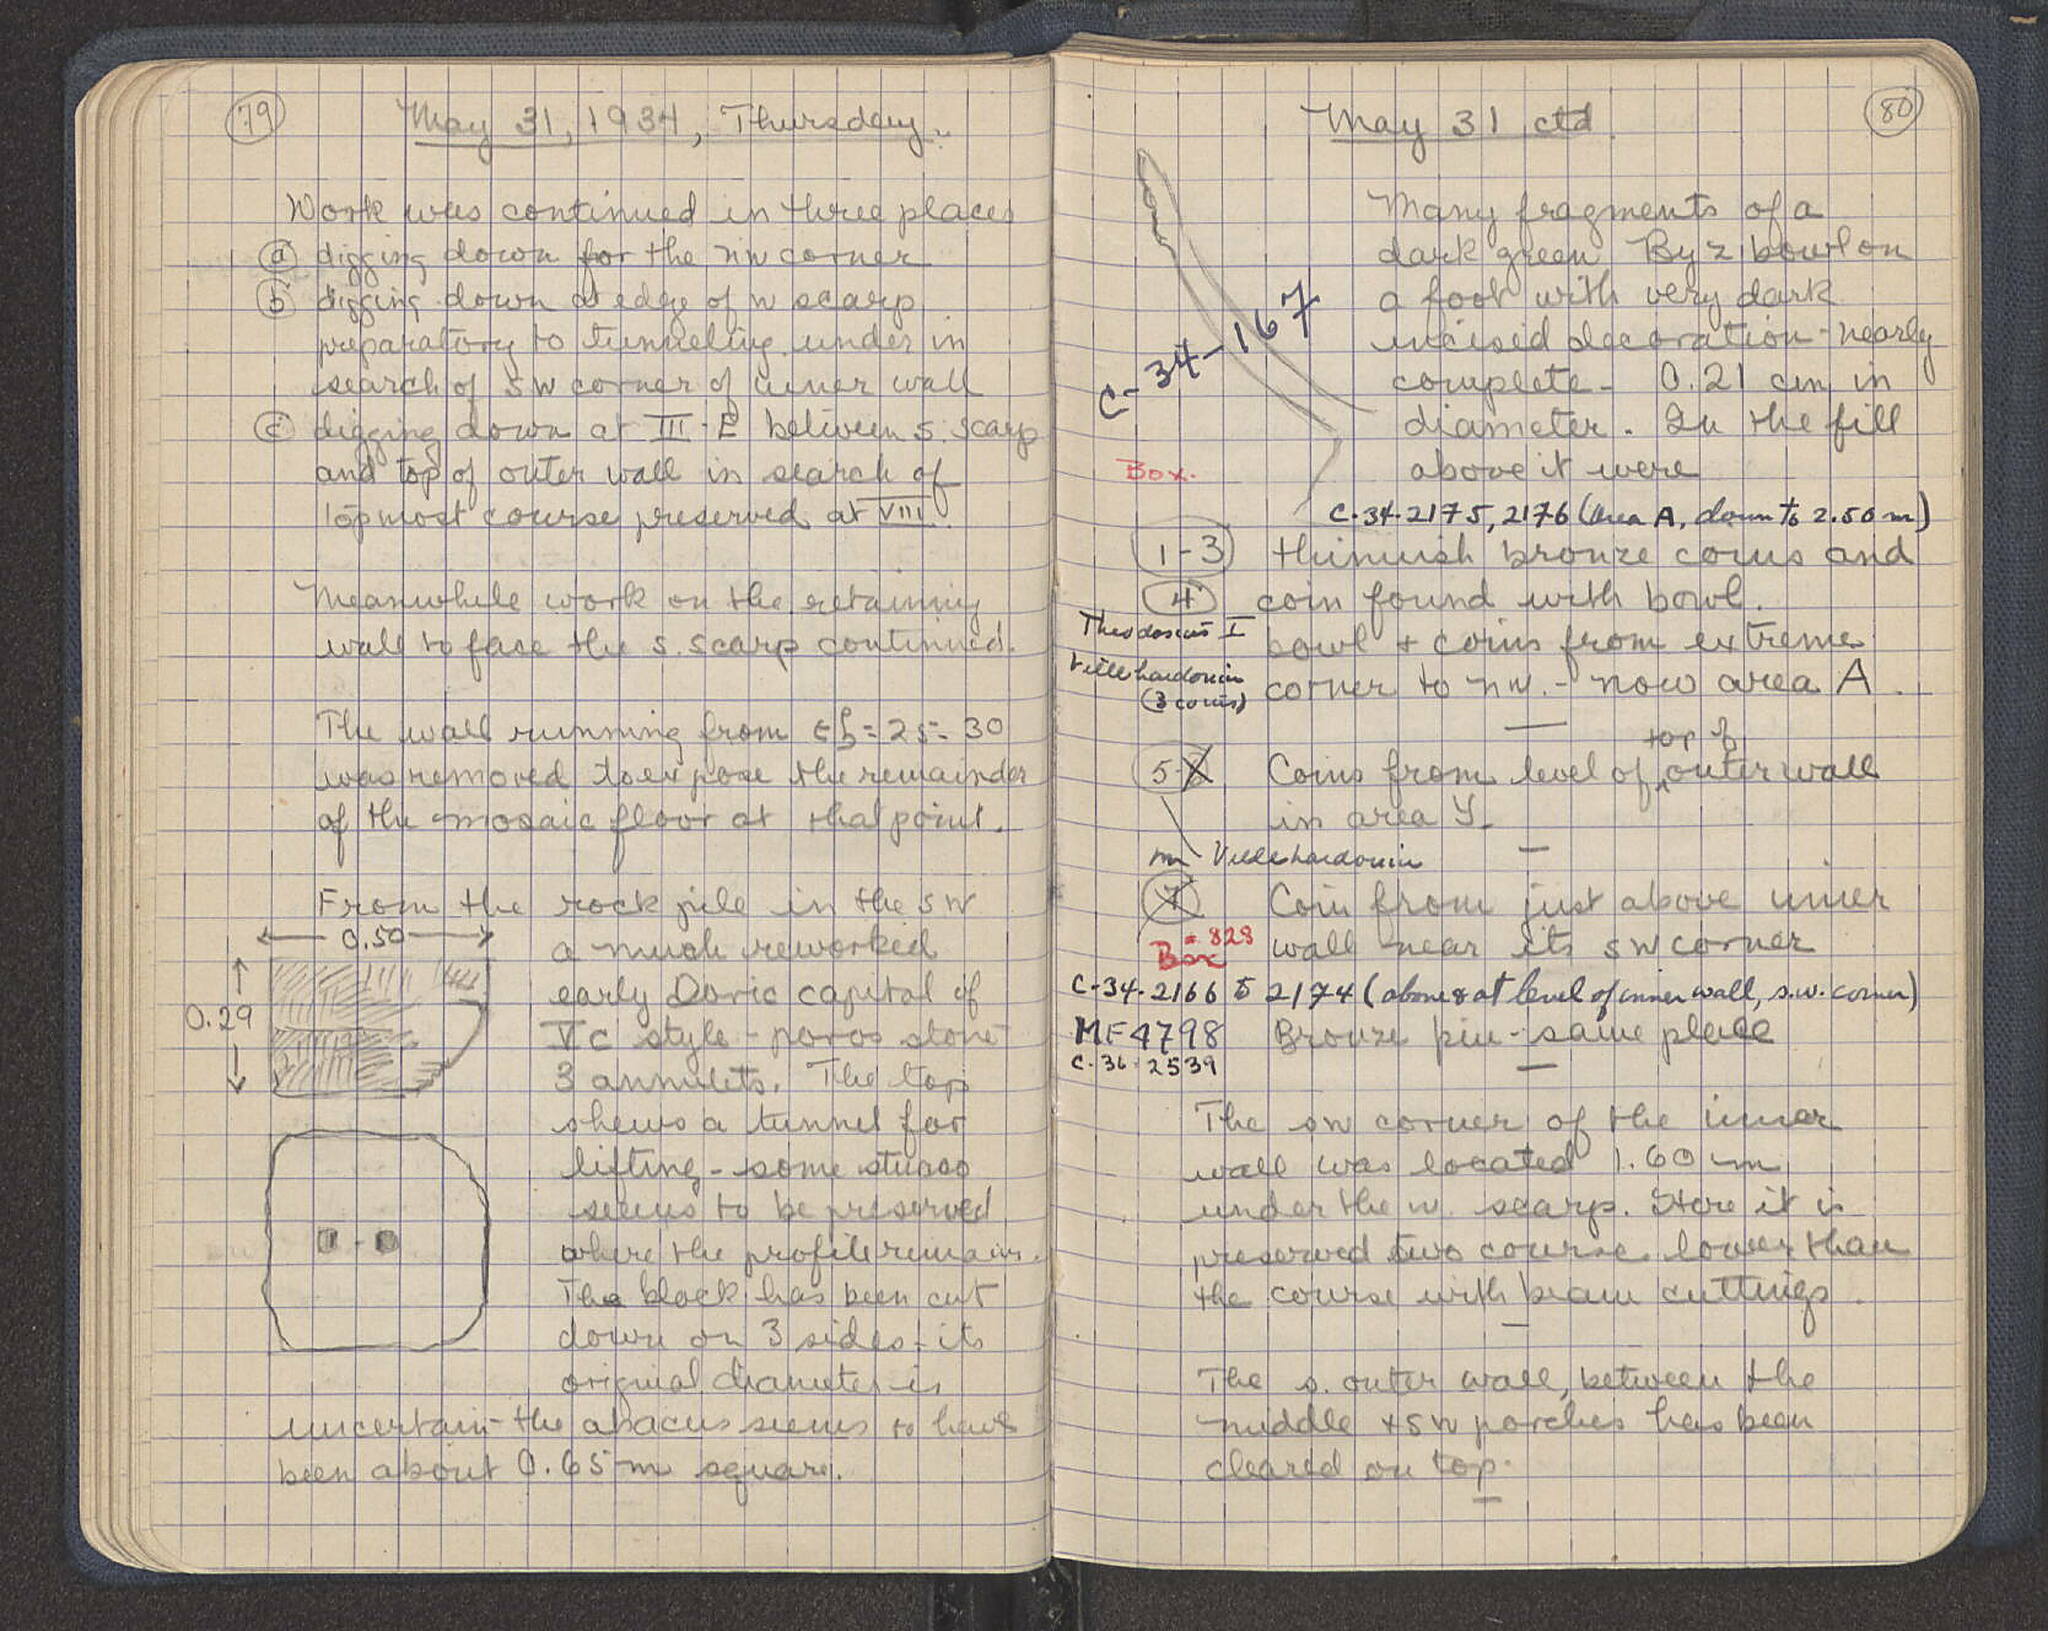 79
May 31, 1934, Thursday.
Work was continued in three places
a digging down for the NW corner
b digging down at edge of W scarp
preparatory to tunneling under in
search of SW corner of inner wall
c digging down at III-E between S. scarp
and top of outer wall in search of
topmost course preserved at VIII.
Meanwhile work on the retaining
wall to face the S. scarp continued.
The wall running from
was removed to expose the remainder
of the mosaic floor at that point.
From the rock pile in the SW
0.50
a much reworked
early Doric capital of
0.29
V c style - poros stone
3 annulets. The top
shews a tunnel for
lifting - some stucco
seems to be preserved
where the profile remains.
The block has been cut
down on 3 sides - its
original diameter is
uncertain - the abacus seems to have
been about 0.65 m square.
80
May 31 ctd.
Many fragments of a
dark green Byz bowl on
a foot with very dark
incised decoration - nearly
complete - 0.21 cm in
diameter. In the fill
above it were
C-34-167
Box.
C-34-2175, 2176 (Area A, down to 2.50 m)
1-3 thinnish bronze coins and
4 coin found with bowl.
Theodosius I
bowl + coins from extreme
Villehardouin
corner to NW. - now area A.
(3 coins)
top of
5- Coins from level of outer wall
in area Y.
Villehardouin
7 Coin from just above inner
= 828
wall near its SW corner
Box
C-34-2166 to 2174 (above & at level of inner wall, s.w. corner)
MF 4798 Bronze pin - same place
C-36-2539
The SW corner of the inner
wall was located 1.60 m
under the W. scarp. Here it is
preserved two courses lower than
the course with beam cuttings.
The S. outer wall, between the
middle + SW porches has been
cleared on top.